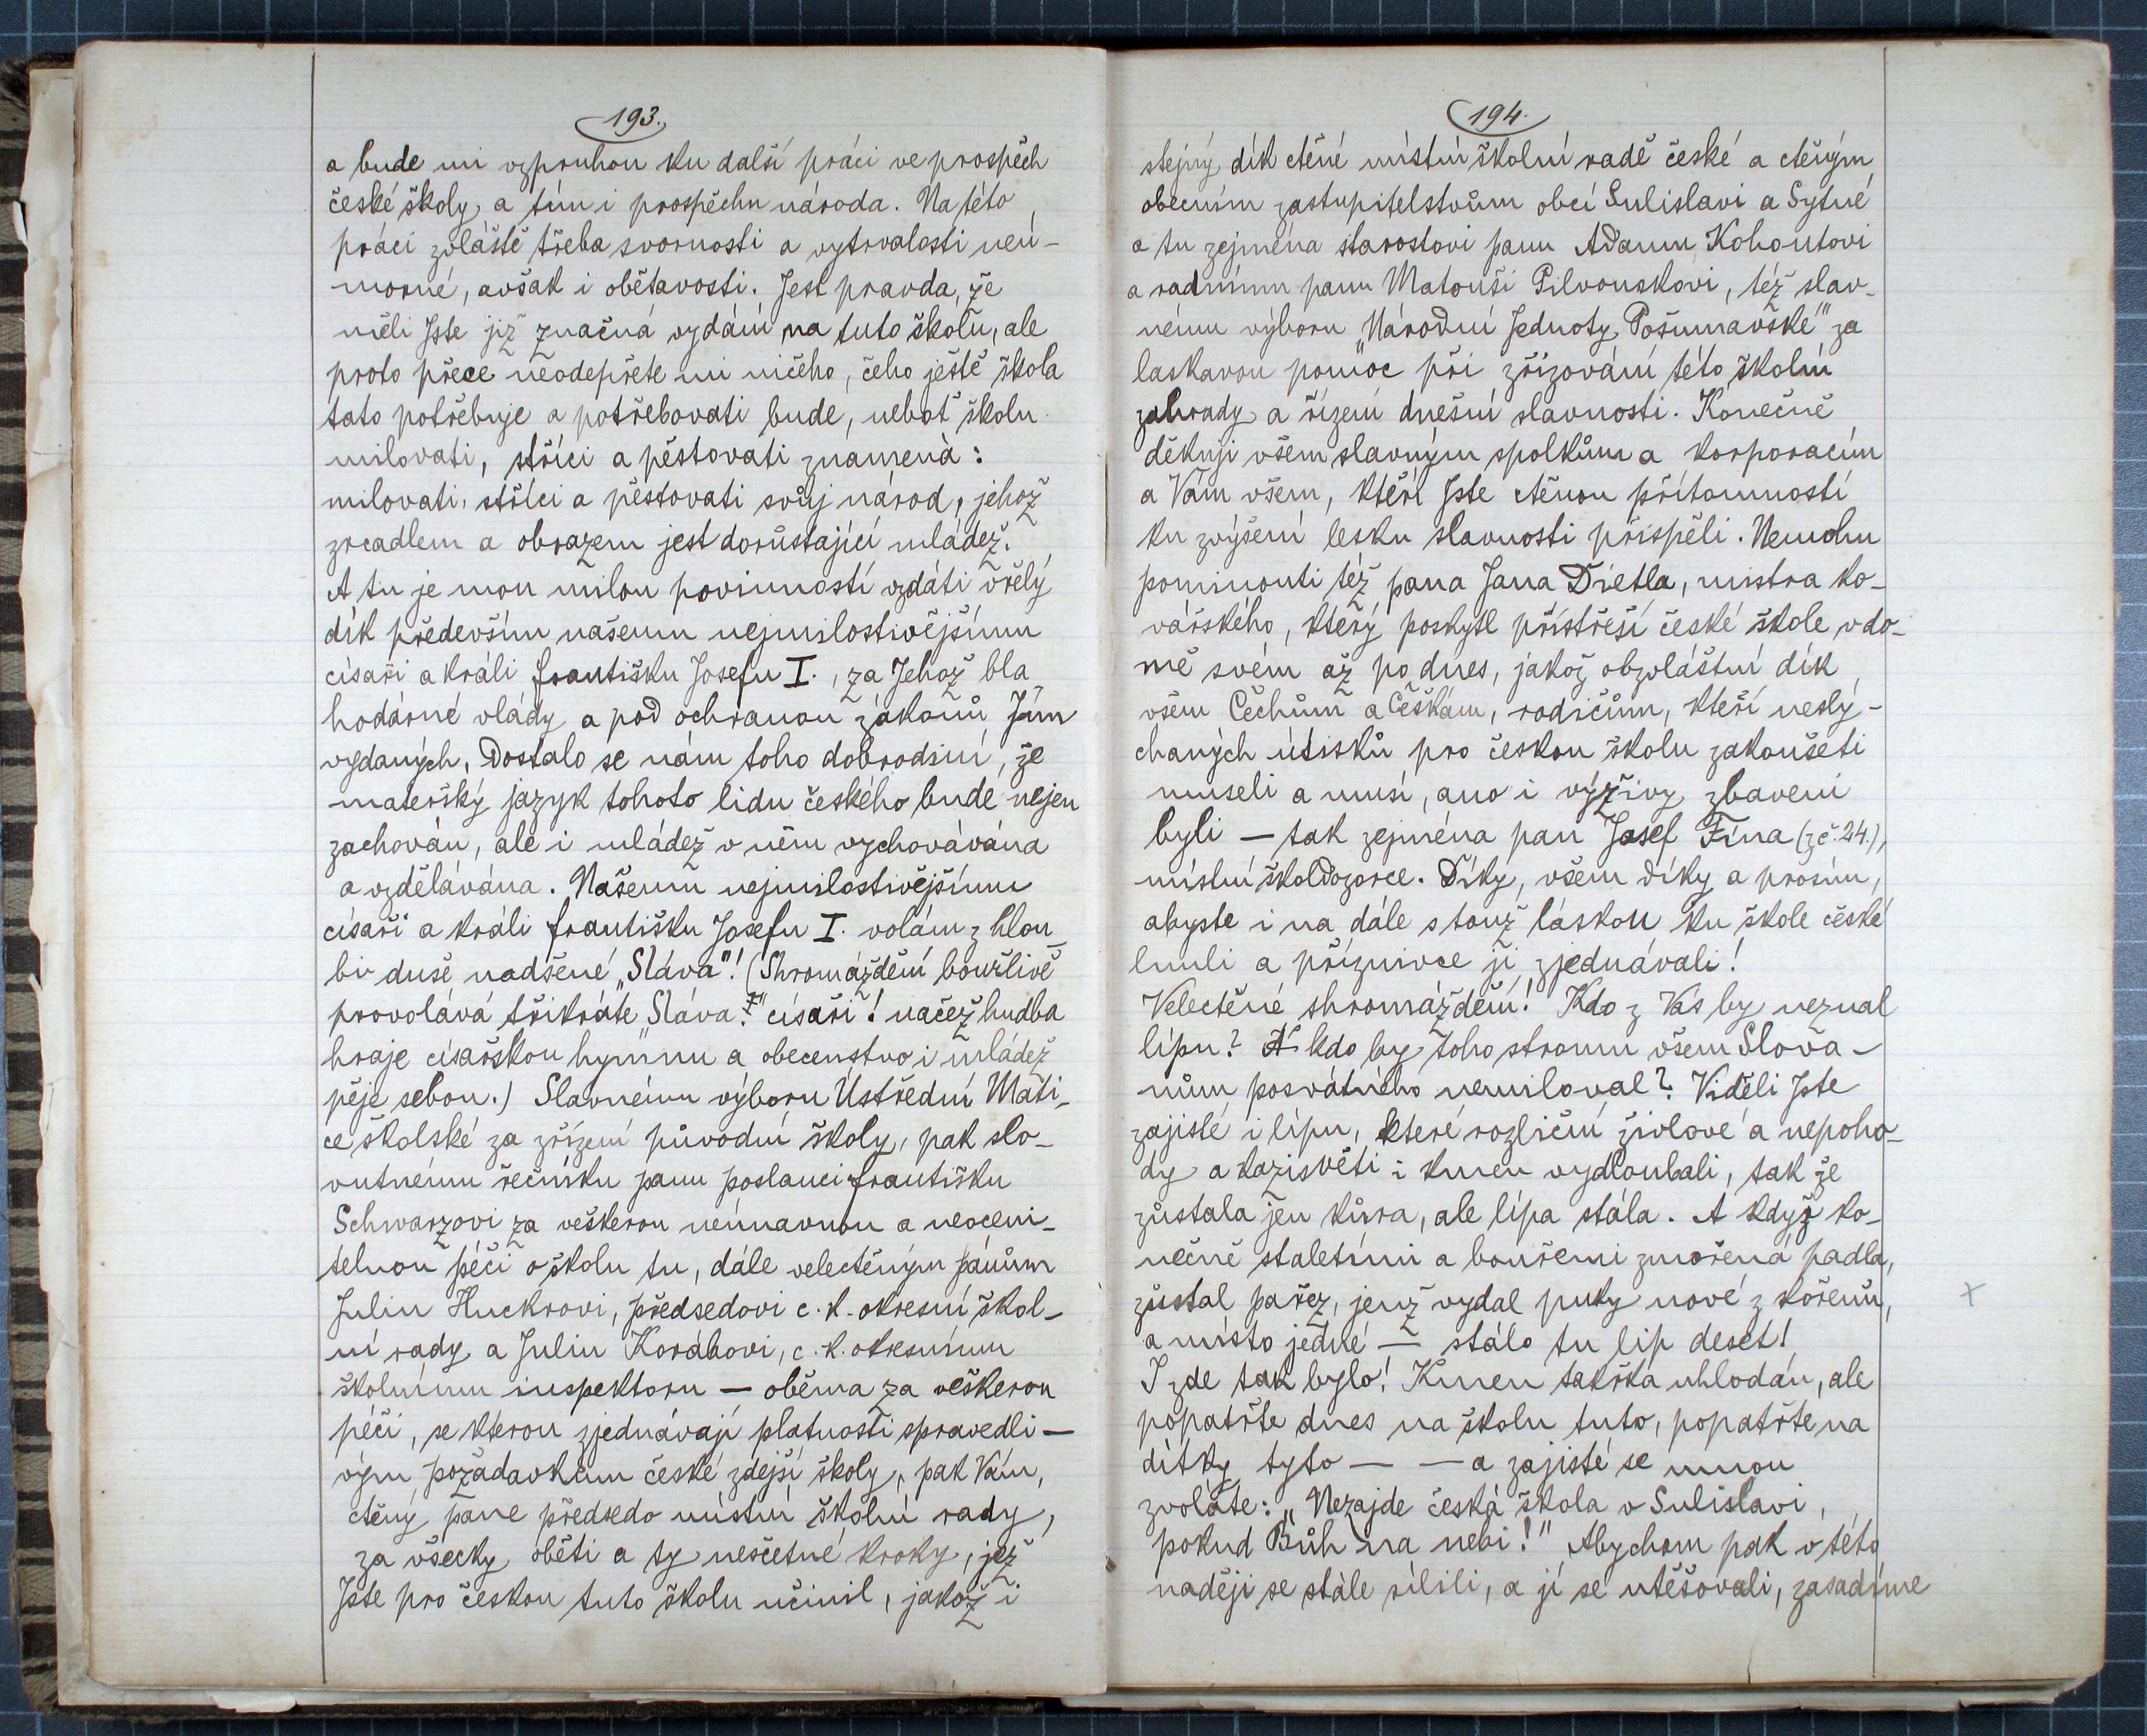 193.
a bude mi vzpruhou ku další práci ve prospěch
české školy a tím i prospěchu národa. Na této
práci zvláště třeba svornosti a vytrvalosti neú-
morné, avšak i obětavosti. Jest pravda, že
měli Jste již značná vydání na tuto školu, ale
proto přece neodepřete mi ničeho, čeho ještě škola
tato potřebuje a potřebovati bude, neboť školu
milovati, stříci a pěstovati znamená:
milovati, stříci a pěstovati svůj národ, jehož
zrcadlem a obrazem jest dorůstající mládež.
A tu je mou milou povinností vzdáti vřelý
dík především našemu nejmilostivějšímu
císaři a králi Františku Josefu I., za Jehož bla-
hodárné vlády a pod ochranou zákonů Jím
vydaných, Dostalo se nám toho dobrodiní, že
mateřský jazyk tohoto lidu českého bude nejen
zachován, ale i mládež v něm vychovávána
a vzdělávána. Našemu nejmilostivějšímu
císaři a králi Františku Josefu I. volám z hlou-
bi duše nadšené „Sláva"! (Shromáždění bouřlivě
provolává třikráte „Sláva!" císaři! načež hudba
hraje císařskou hymnu a obecenstvo i mládež
pěje sebou.) Slavnému výboru Ústřední Mati-
ce školské za zřízení původní školy, pak slo-
vutnému řečníku panu poslanci Františku
Schwarzovi za veškerou neúnavnou a neoceni-
telnou péči o školu tu, dále velectěným pánům
Juliu Huckrovi, předsedovi c. k. okresní škol-
ní rady a Juliu Korábovi, c. k. okresnímu
školnímu inspektoru — oběma za veškerou
péči, se kterou zjednávají platnosti spravedli-
vým požadavkům české zdejší školy, pak Vám,
ctěný pane předsedo místní školní rady,
za všecky oběti a ty nesčetné kroky, jež
Jste pro českou tuto školu učinil, jakož i
194.
stejný dík ctěné místní školní radě české a ctěným
obecním zastupitelstvům obcí Sulislavi a Sytné
a tu zejména starostovi panu Adamu Kohoutovi
a radnímu panu Matouši Pilvouskovi, též slav-
nému výboru „Národní Jednoty Pošumavské" za
laskavou pomoc při zřizování této školní
zahrady a řízení dnešní slavnosti. Konečně
děkuji všem slavným spolkům a korporacím
a Vám všem, kteří Jste ctěnou přítomností
ku zvýšení lesku slavnosti přispěli. Nemohu
pominouti též pana Jana Dietla, mistra ko-
vářského, který poskytl přístřeší české škole v do-
mě svém až po dnes, jakož obzvláštní dík
všem Čechům a Češkám, rodičům, kteří neslý-
chaných útisků pro českou školu zakoušeti
museli a musí, ano i výživy zbaveni
byli — tak zejména pan Josef Fína (z č. 24.),
místní školdozorce. Díky, všem díky a prosím,
abyste i na dále s touž láskou ku škole české
lnuli a příznivce jí zjednávali!
Velectěné shromáždění! Kdo z Vás by neznal
lípu? A kdo by toho stromu všem Slova-
nům posvátného nemiloval? Viděli Jste
zajisté i lípu, které rozliční živlové a nepoho-
dy a kazisvěti i kmen vydloubali, tak že
zůstala jen kůra, ale lípa stála. A když ko-
nečně staletími a bouřemi zmořená padla,
zůstal pařez, jenž vydal puky nové z kořenů,
a místo jedné — stálo tu lip deset!
I zde tak bylo! Kmen takřka uhlodán, ale
popatřte dnes na školu tuto, popatřte na
dítky tyto — — a zajisté se mnou
zvoláte: „Nezajde česká škola v Sulislavi,
pokud Bůh na nebi!" Abychom pak v této
naději se stále sílili, a jí se utěšovali, zasadíme